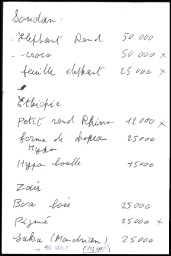 Soudan.
- Elephant Rond 50 000
- croco 50 000 x
- feuille elephant 25 000 x
Ethiopie
Potit rond Rhino 12 000 x
forme de drapeau 25000
Hypo
Hypo boulle 15000
Zaïr
Boa bois 25000
Pigmé 25000 x
Saka (Mondrian) 25000